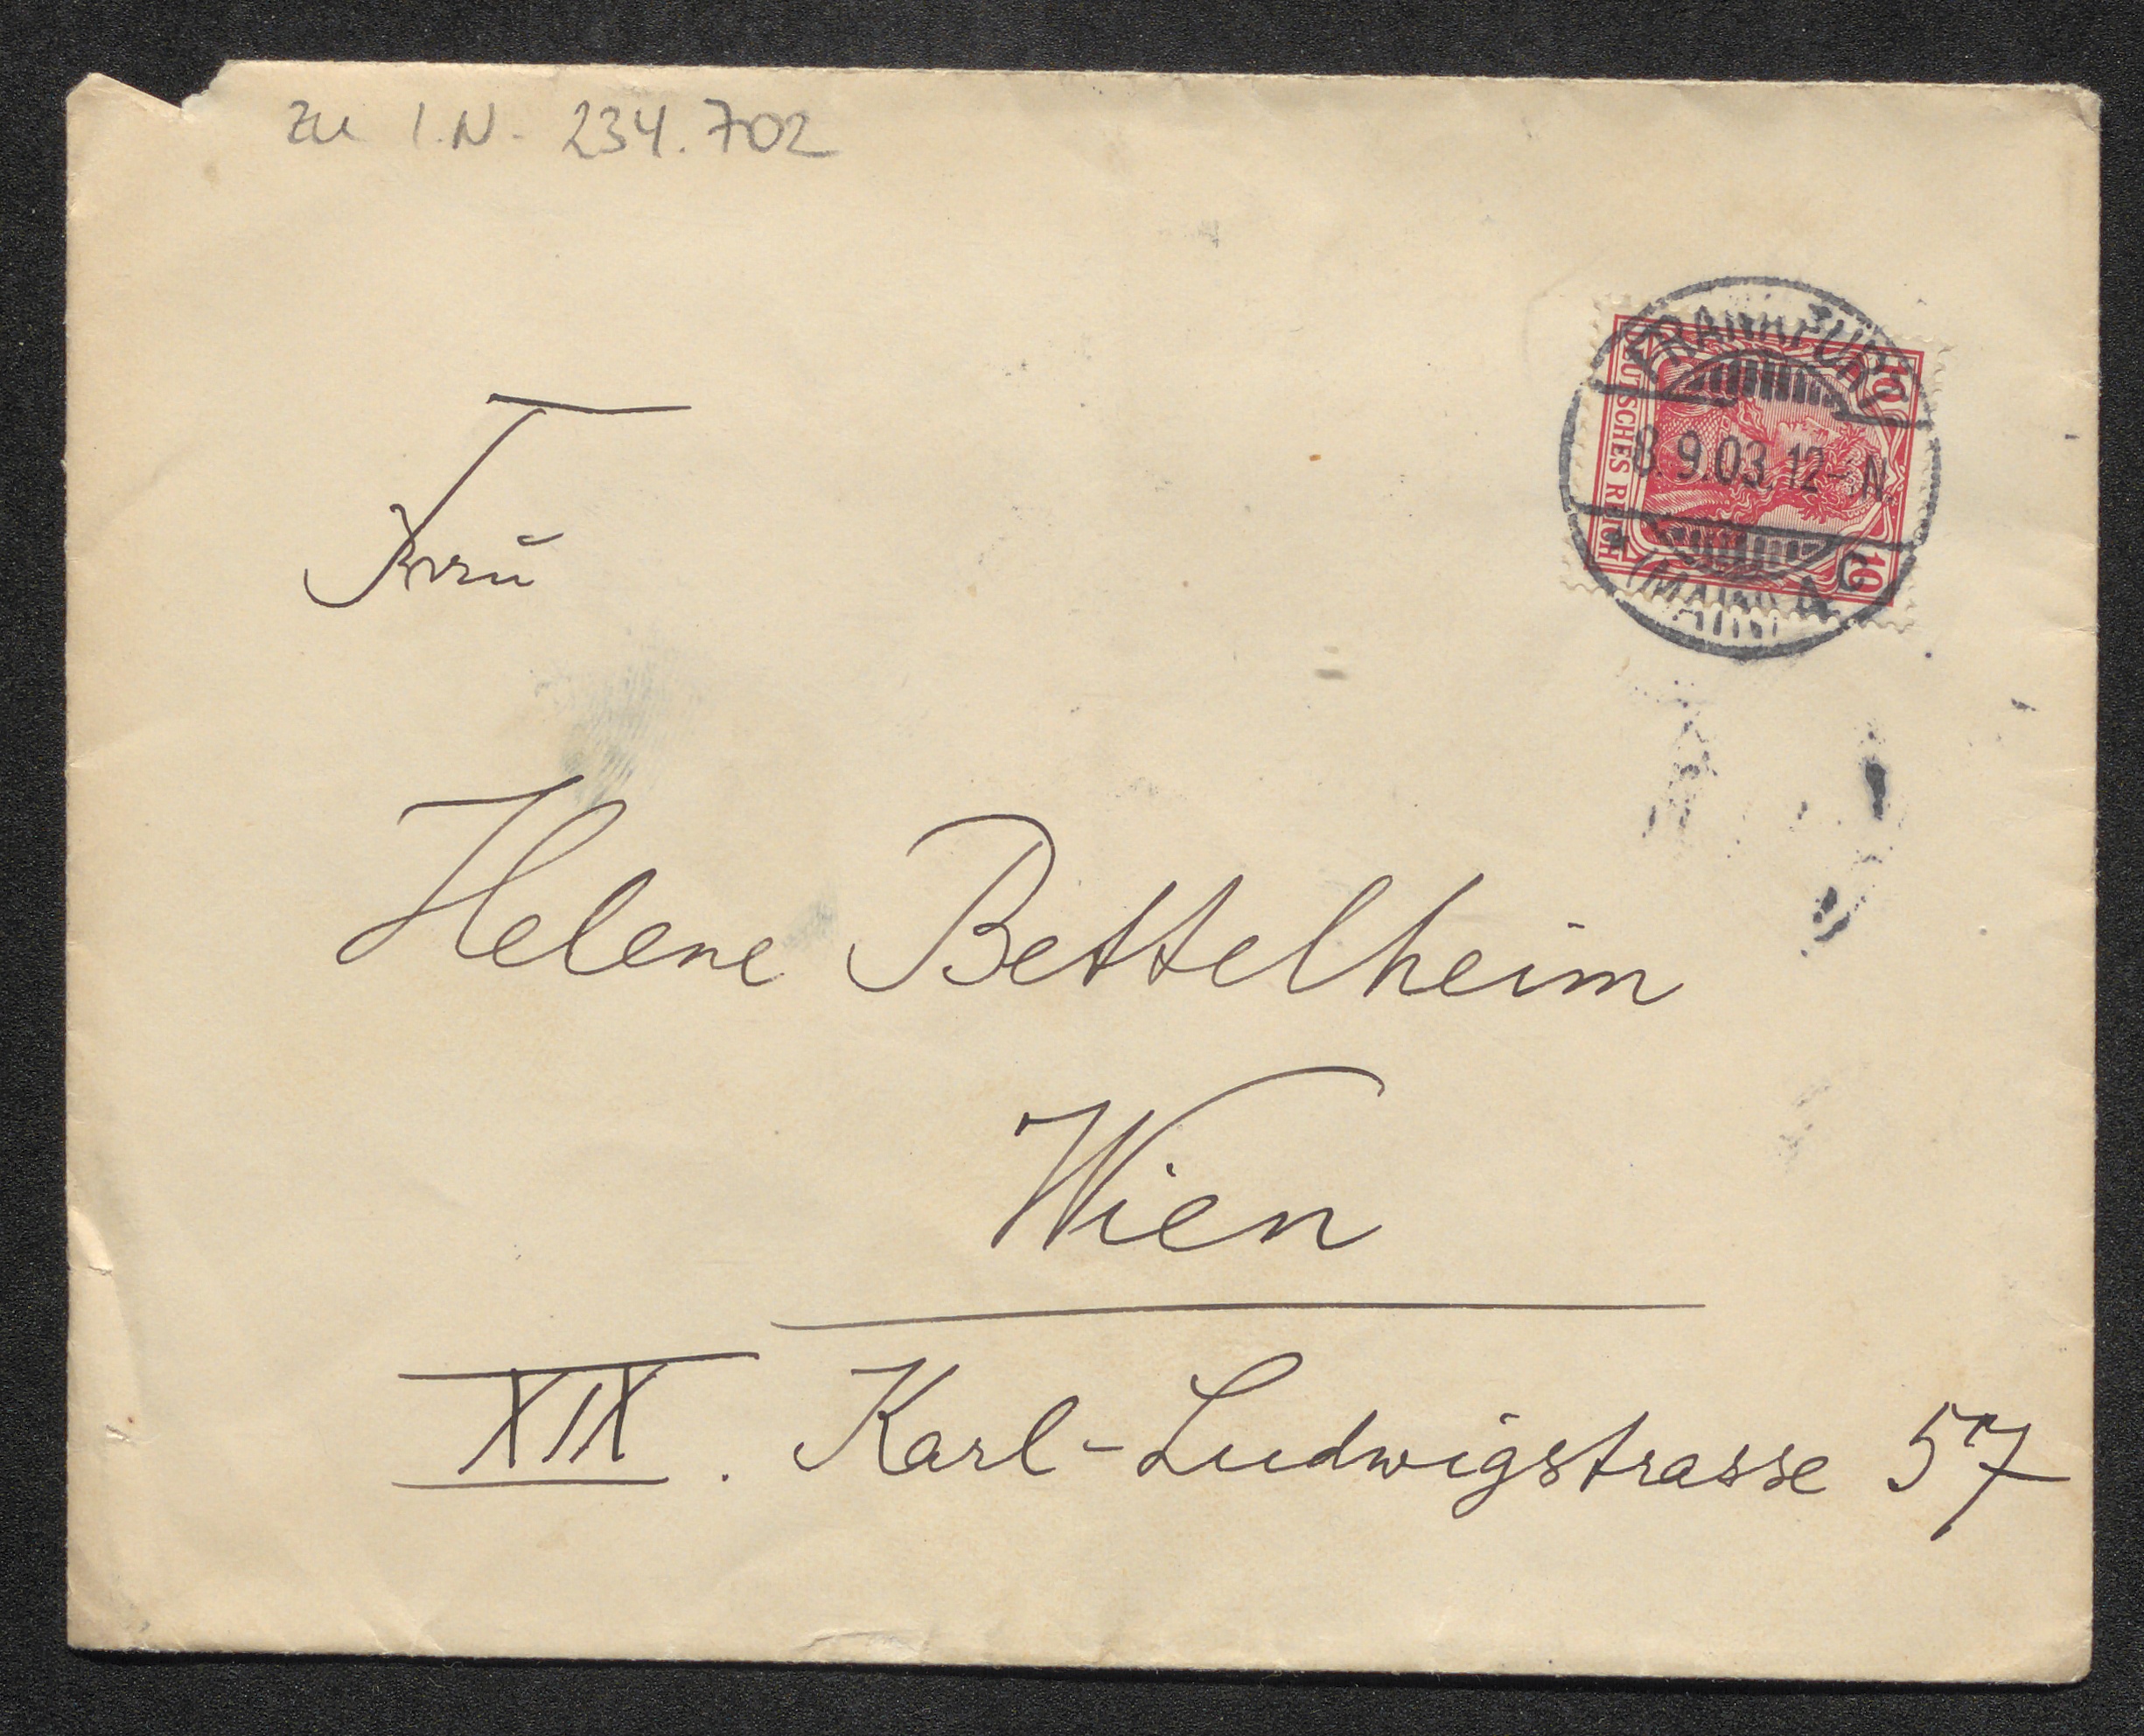 zu I.N. 234.702
FRANKFURT
8.9.03. 12-1N.
* (MAIN)
10
DEUTSCHES REICH
10
Frau
Helene Bettelheim
Wien
XIX. Karl-Ludwigstrasse 57